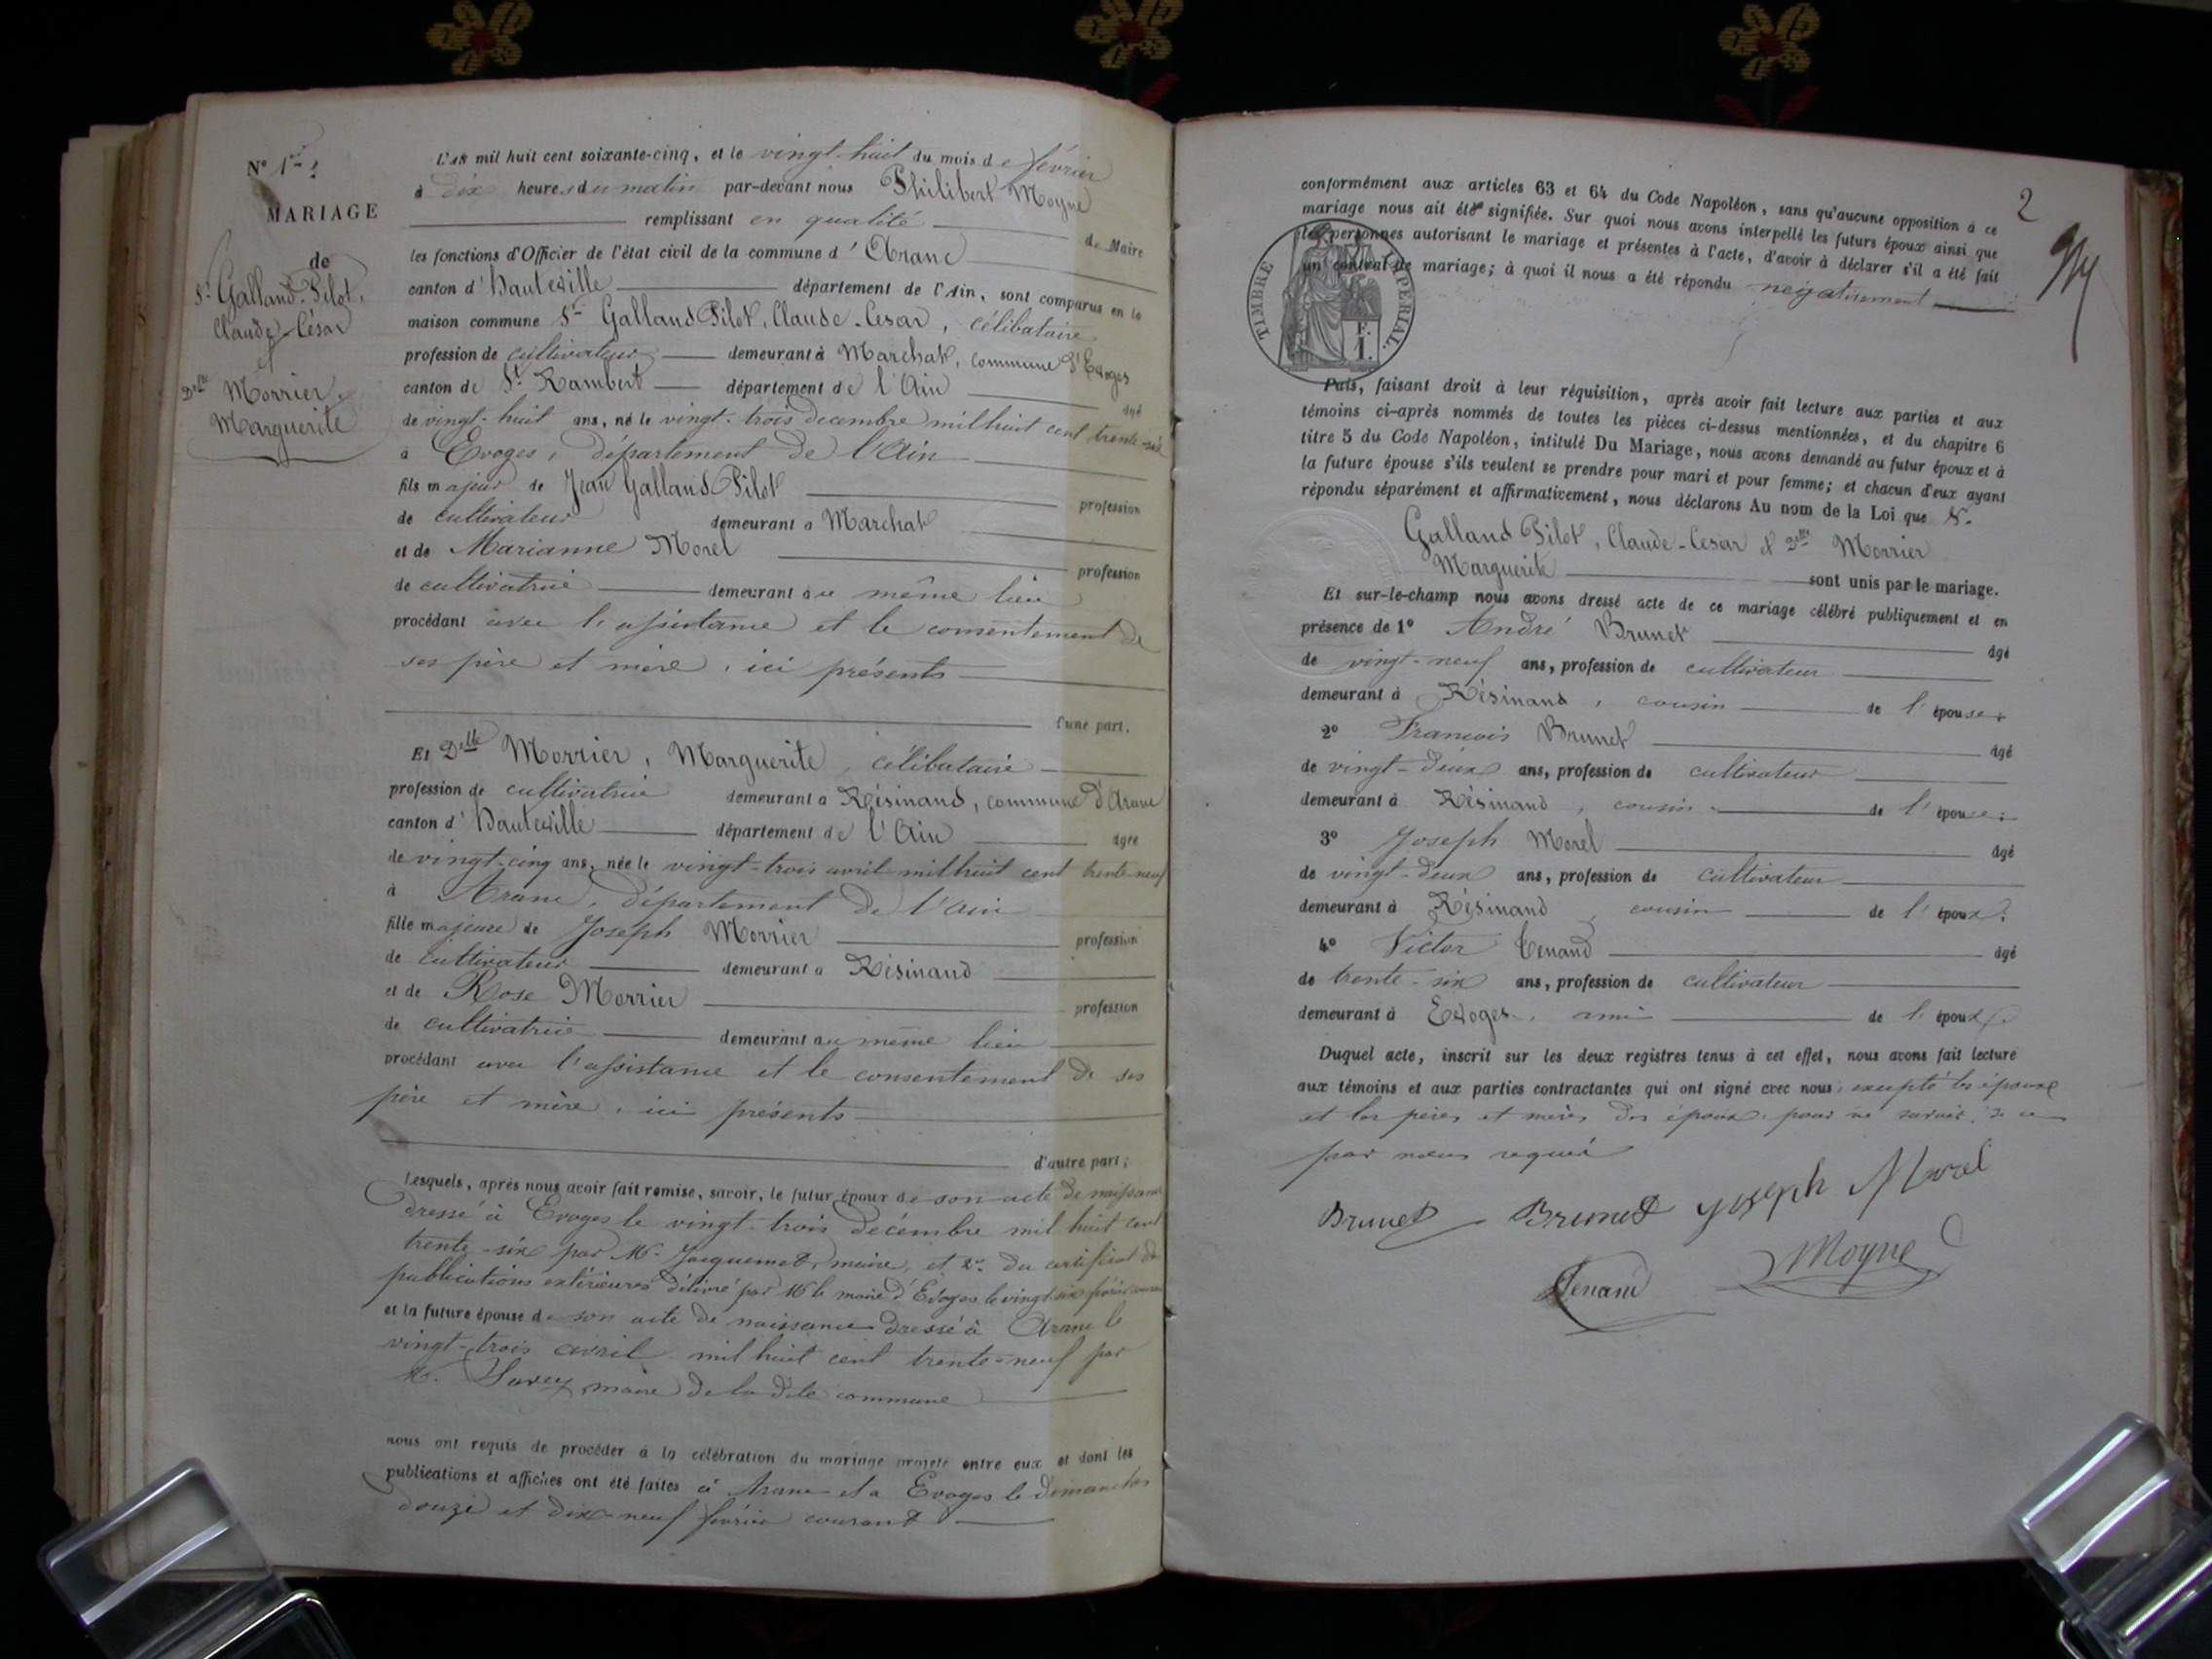 N° 1er
MARIAGE
de
Sr Galland-Pilot,
Claude-César
et
Delle Morrier,
Marguerite
L'AN mil huit cent soixante-cinq, et le vingt-huit du mois de février
à dix heures du matin par-devant nous Philibert Moyne
remplissant en qualité de Maire
les fonctions d'Officier de l'état civil de la commune d'Aranc
canton d'Hauteville département de l'Ain, sont comparus en la
maison commune Sr Galland Pilot, Claude-Cesar, célibataire
profession de cultivateur demeurant à Marchat, commune d'Evoges
canton de St Rambert département de l'Ain âgé
de vingt-huit ans, né le vingt-trois decembre mil huit cent trente-six
à Evoges, département de l'Ain
fils majeur de Jean Galland Pilot profession
de cultivateur demeurant à Marchat
et de Marianne Morel profession
de cultivatrice demeurant au même lieu
procédant avec l'assistance et le consentement de
ses père et mère, ici présents
d'une part.
Et Delle Morrier, Marguerite, célibataire
profession de cultivatrice demeurant à Résinand, commune d'Aranc
canton d'Hauteville département de l'Ain âgée
de vingt-cinq ans, née le vingt-trois avril mil huit cent trente-neuf
à Aranc, département de l'Ain
fille majeure de Joseph Morrier profession
de cultivateur demeurant à Résinand
et de Rose Morrier profession
de cultivatrice demeurant au même lieu
procédant avec l'assistance et le consentement de ses
père et mère, ici présents
d'autre part;
Lesquels, après nous avoir fait remise, savoir, le futur époux de son acte de naissance
dressé à Evoges le vingt-trois Décembre mil huit cent
trente-six par M. Jacquemet, maire, et 2° du certificat de
publications extérieures délivré par M. le maire d'Evoges le vingt-six février
et la future épouse de son acte de naissance dressé à Aranc le
vingt-trois avril mil huit cent trente-neuf par
M. Savey, maire de la dite commune
nous ont requis de procéder à la célébration du mariage projeté entre eux et dont les
publications et affiches ont été faites à Aranc et à Evoges le dimanches
douze et dix-neuf février courant
2
conformément aux articles 63 et 64 du Code Napoléon, sans qu'aucune opposition à ce
mariage nous ait été signifiée. Sur quoi nous avons interpellé les futurs époux ainsi que
les personnes autorisant le mariage et présentes à l'acte, d'avoir à déclarer s'il a été fait
un contrat de mariage; à quoi il nous a été répondu négativement
TIMBRE IMPÉRIAL.
F.
1.
Puis, faisant droit à leur réquisition, après avoir fait lecture aux parties et aux
témoins ci-après nommés de toutes les pièces ci-dessus mentionnées, et du chapitre 6
titre 5 du Code Napoléon, intitulé Du Mariage, nous avons demandé au futur époux et à
la future épouse s'ils veulent se prendre pour mari et pour femme; et chacun d'eux ayant
répondu séparément et affirmativement, nous déclarons Au nom de la Loi que Sr
Galland Pilot, Claude-Cesar & Delle Morrier
Marguerite sont unis par le mariage.
Et sur-le-champ nous avons dressé acte de ce mariage célébré publiquement et en
présence de 1° André Brunet âgé
de vingt-neuf ans, profession de cultivateur
demeurant à Résinand, cousin de l'épouse;
2° Francois Brunet âgé
de vingt-deux ans, profession de cultivateur
demeurant à Résinand, cousin de l'épouse;
3° Joseph Morel âgé
de vingt-deux ans, profession de cultivateur
demeurant à Résinand, cousin de l'époux;
4° Victor Tenand âgé
de trente-six ans, profession de cultivateur
demeurant à Evoges, ami de l'époux.
Duquel acte, inscrit sur les deux registres tenus à cet effet, nous avons fait lecture
aux témoins et aux parties contractantes qui ont signé avec nous, excepté les époux
et les pères et mères des époux, pour ne savoir, de ce
par nous requis
Brunet Brunet Joseph Morel
Tenand Moyne